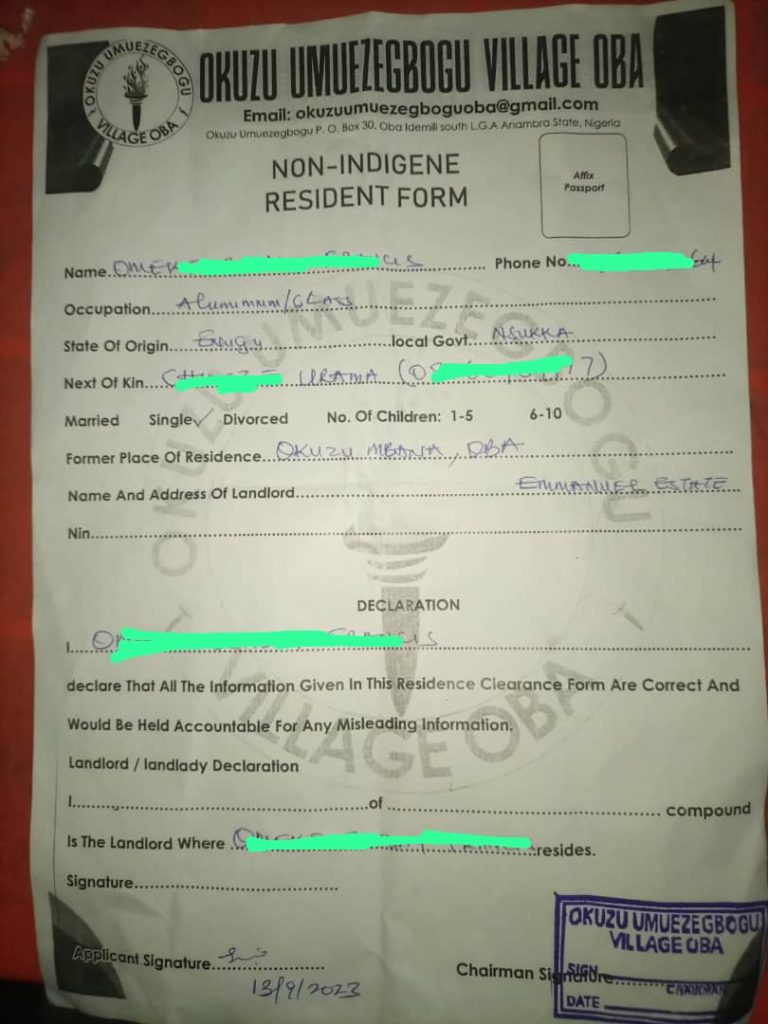 OKUZU UMUEZEGBOGU
VILLAGE OBA
OKUZU UMUEZEGBOGU VILLAGE OBA
Email: okuzuumuezegboguoba@gmail.com
Okuzu Umuezegbogu P. O. Box 30, Oba Idemili south L.G.A Anambra State, Nigeria
NON-INDIGENE
RESIDENT FORM
Affix
Passport
Name. Phone No.
Occupation. Aluminum/GLASS
State Of Origin. Enugu local Govt. NSUKKA
Next Of Kin. URAMA
Married Single ✓ Divorced No. Of Children: 1-5 6-10
Former Place Of Residence. OKUZU MBANA, OBA
Name And Address Of Landlord. EMMANUEL ESTATE
Nin.
OKUZU UMUEZEGBOGU
VILLAGE OBA
DECLARATION
I.
declare That All The Information Given In This Residence Clearance Form Are Correct And
Would Be Held Accountable For Any Misleading Information.
Landlord / landlady Declaration
I. of compound
Is The Landlord Where resides.
Signature.
Applicant Signature.
13/9/2023
Chairman Signature.
OKUZU UMUEZEGBOGU
VILLAGE OBA
SIGN
CHAIRMAN
DATE